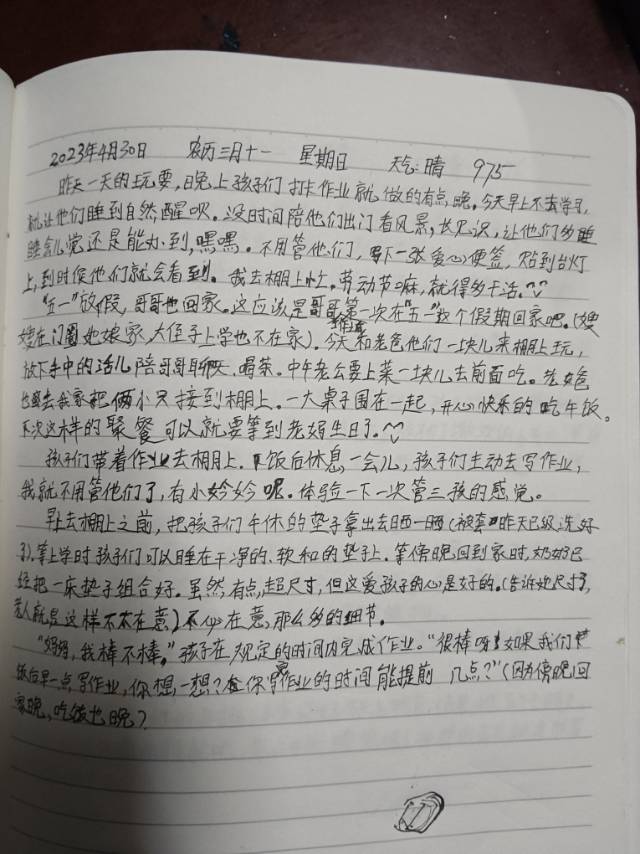 2023年4月30日 农历三月十一 星期日 天气:晴 975
昨天一天的玩耍,晚上孩子们打卡作业就做的有点晚。今天早上不去学习,
就让他们睡到自然醒呗。没时间陪他们出门看风景,长见识,让他们多睡
睡会儿觉还是能办到,嘿嘿。不用管他们,写下一张爱心便签,贴到台灯
上,到时侯他们就会看到。我去棚上忙。劳动节嘛,就得多干活。
"五一"放假,哥哥也回家。这应该是哥哥第一次在"五一"这个假期回家吧。(嫂
嫂在门圈她娘家,大侄子上学也不在家)。今天和老爸他们一块儿来棚上玩,
放下手中的活儿陪哥哥聊天、喝茶。中午老公要上菜一块儿去前面吃。老爸
也要去我家把俩小只接到棚上。一大桌子围在一起,开心快乐的吃午饭。
下次这样的聚餐可以就要等到老妈生日了。
孩子们带着作业去棚上。饭后休息一会儿,孩子们主动去写作业,
我就不用管他们了,有小妗妗呢。体验一下一次管三孩的感觉。
早上去棚上之前,把孩子们午休的垫子拿出去晒一晒(被套昨天已经洗好
了)。等上学时孩子们可以睡在干净的、软和的垫子上。等傍晚回到家时,奶奶已
经把一床垫子组合好。虽然,有点超尺寸,但这爱孩子的心是好的。(告诉她尺寸了,
老人就是这样不太在意)不必在意,那么多的细节。
"妈妈,我棒不棒。"孩子在规定的时间内完成作业。"很棒呀!如果我们
饭后早一点写作业,你想一想?你写作业的时间能提前 几点?"(因为傍晚回
家晚,吃饭也晚?